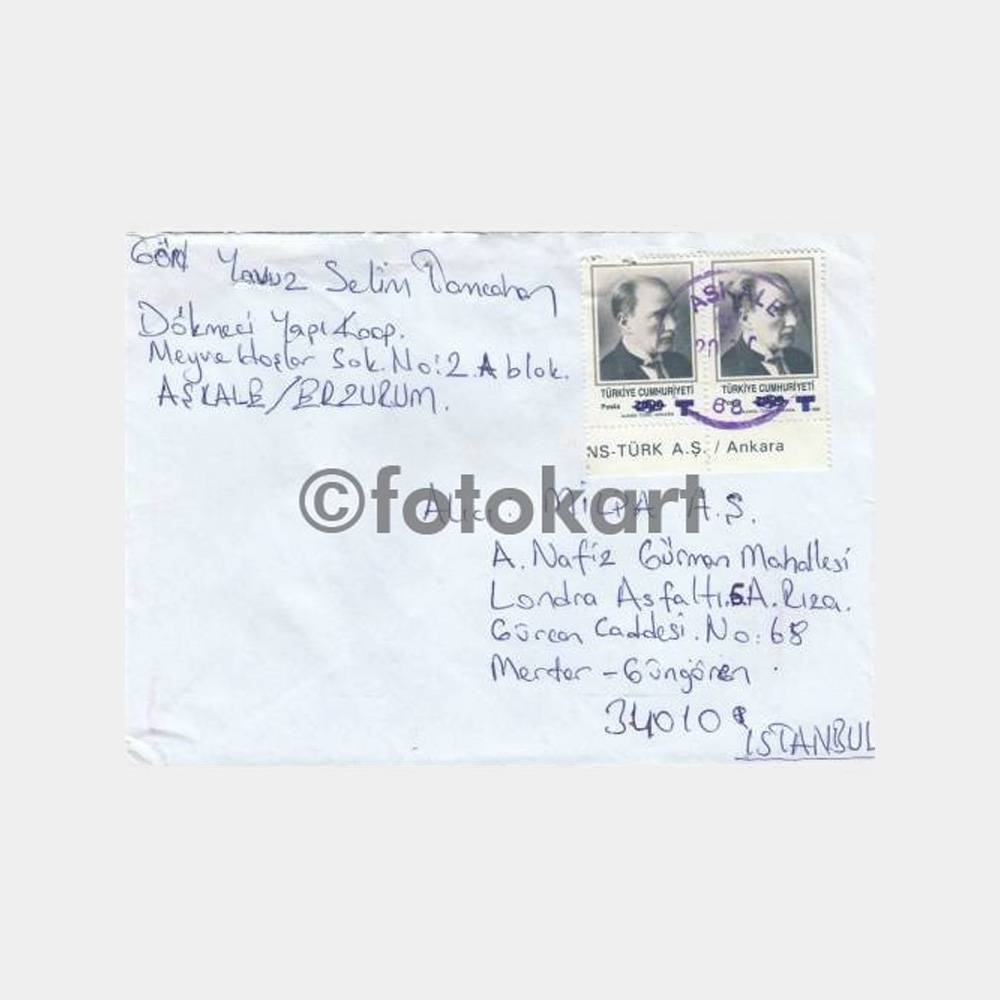 Gön Yavuz Selim
Dökmeci Yapı Koop.
Meyve Hoşlar Sok. No: 2 A blok.
AŞKALE/ERZURUM.
AŞKALE
68
TÜRKİYE CUMHURİYETİ
Posta T
TÜRKİYE CUMHURİYETİ
T
NS-TÜRK A.Ş. / Ankara
©fotokart
Alıcı: MİLPA A.Ş.
A. Nafiz Gürman Mahallesi
Londra Asfaltı A. Rıza.
Gürcan Caddesi. No: 68
Merter - Güngören
34010
İSTANBUL